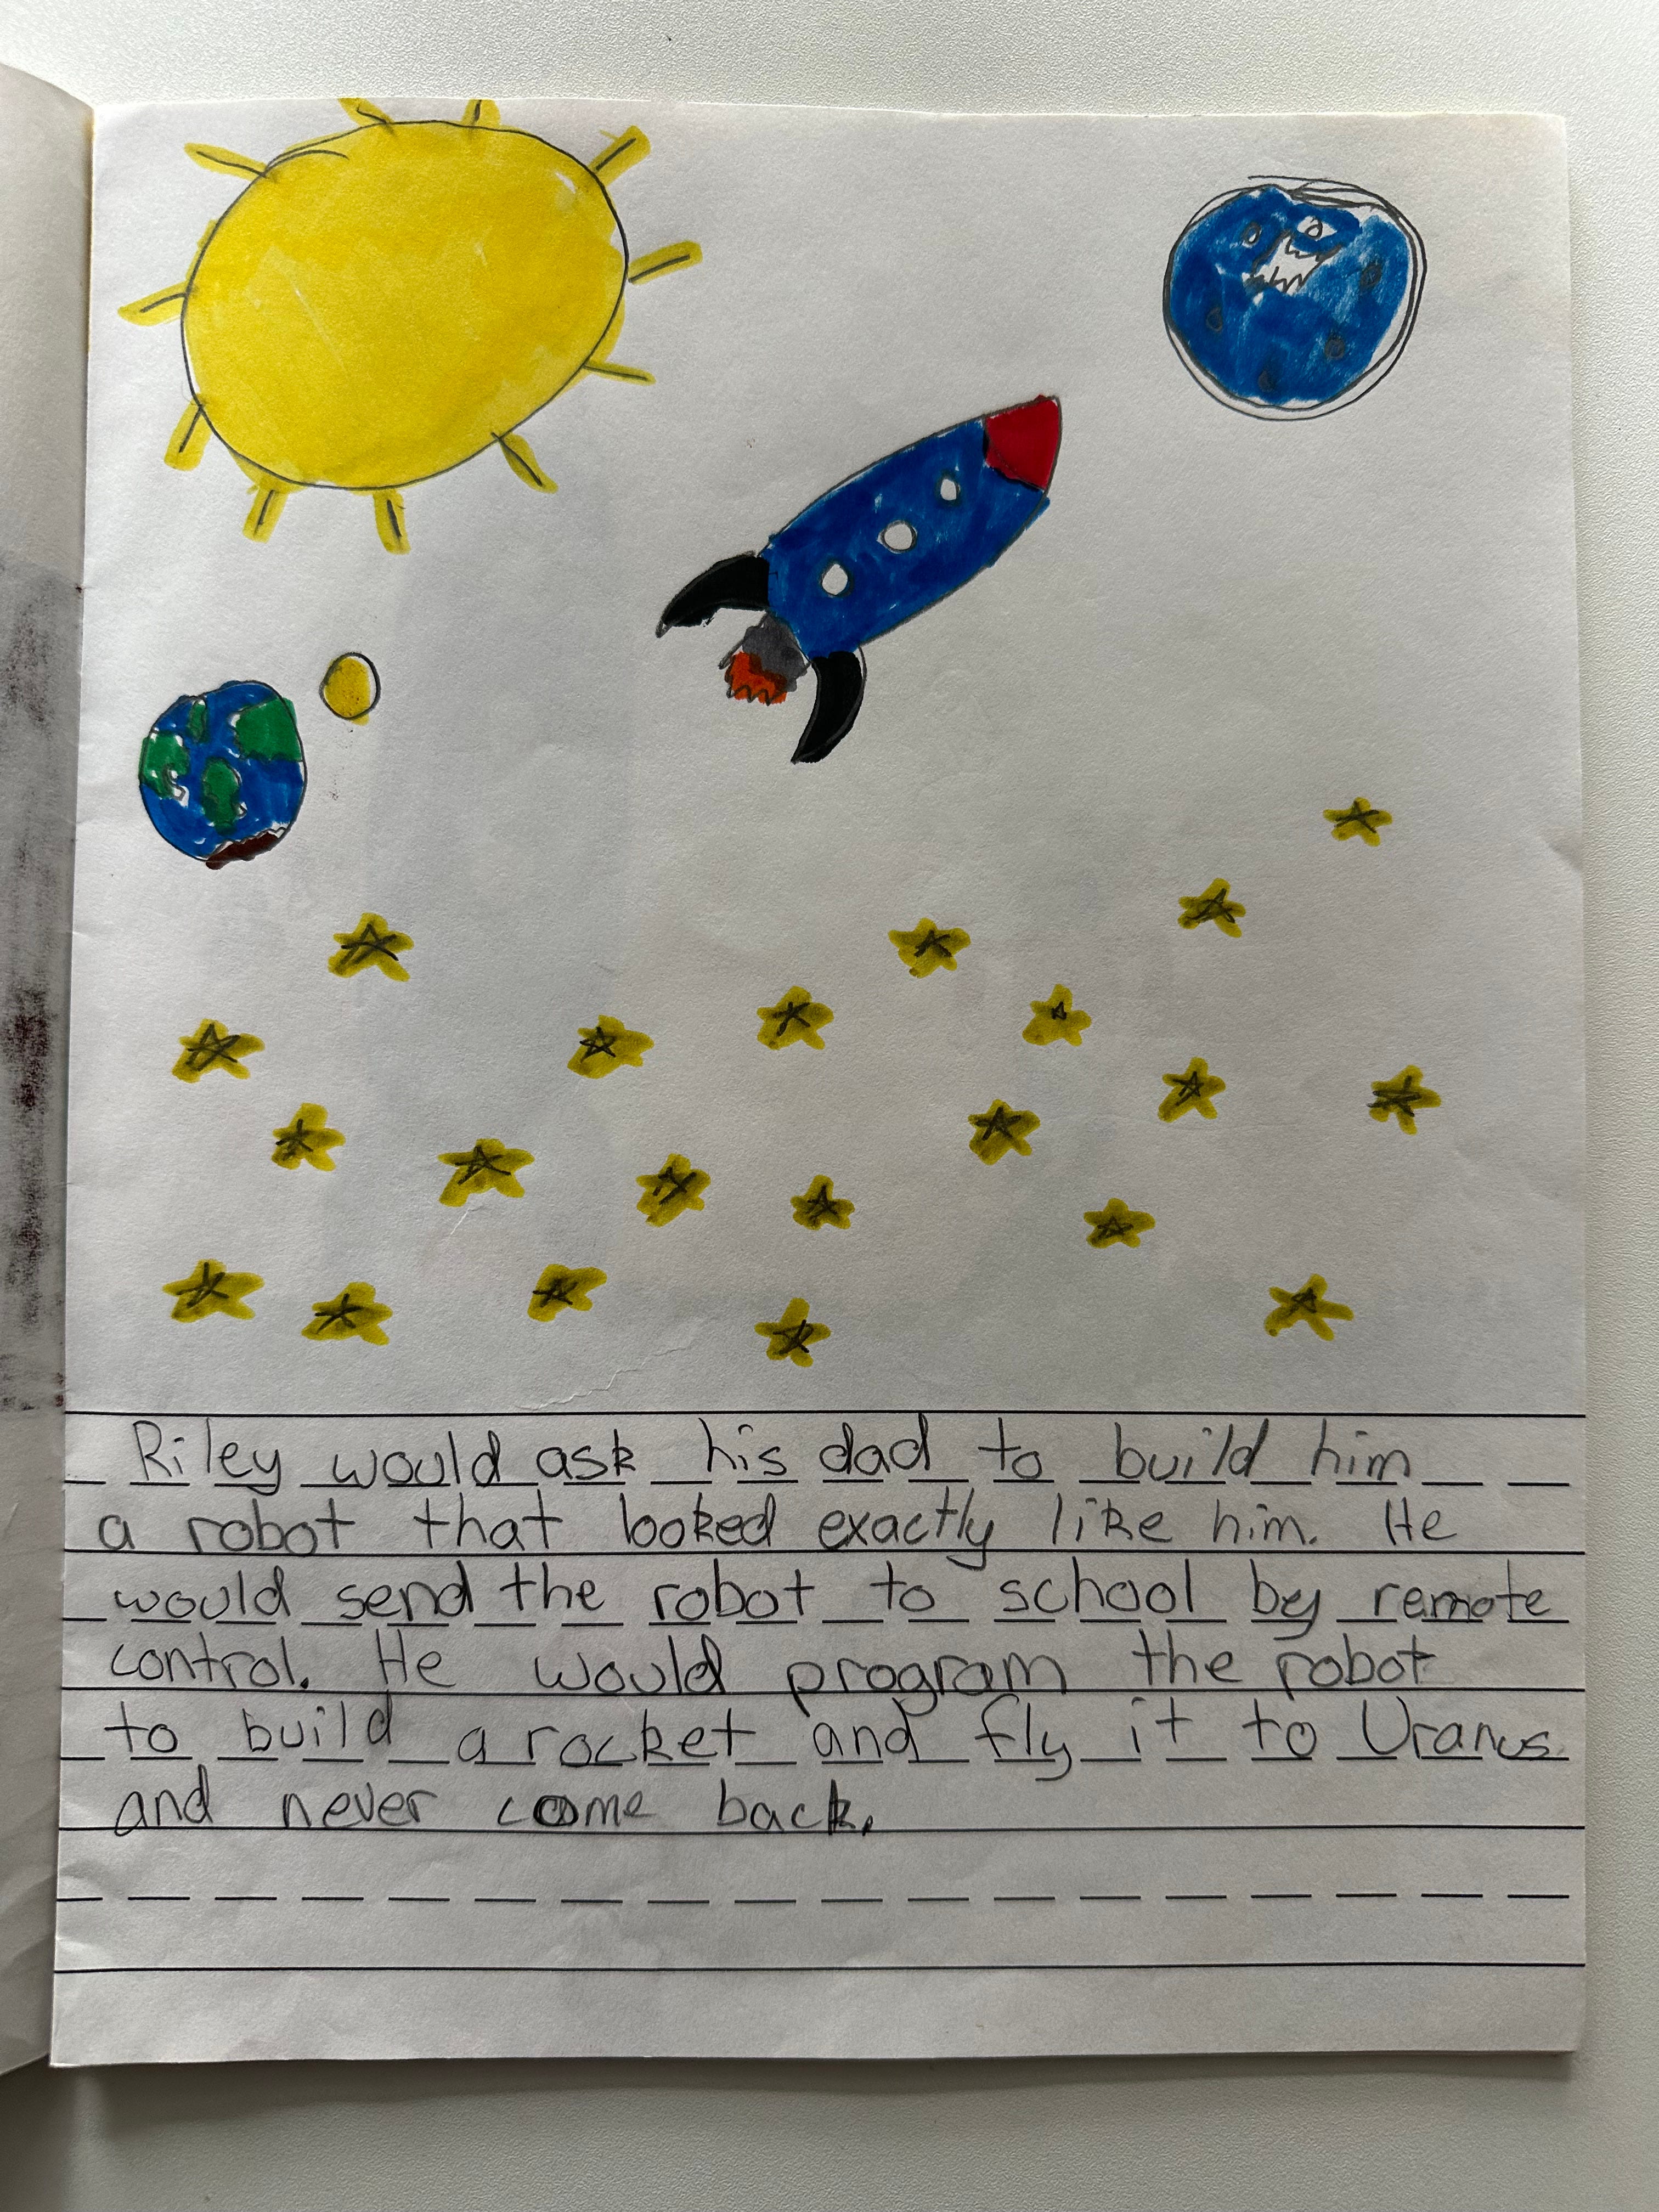 Riley would ask his dad to build him
a robot that looked exactly like him. He
would send the robot to school by remote
control. He would program the robot
to build a rocket and fly it to Uranus
and never come back.